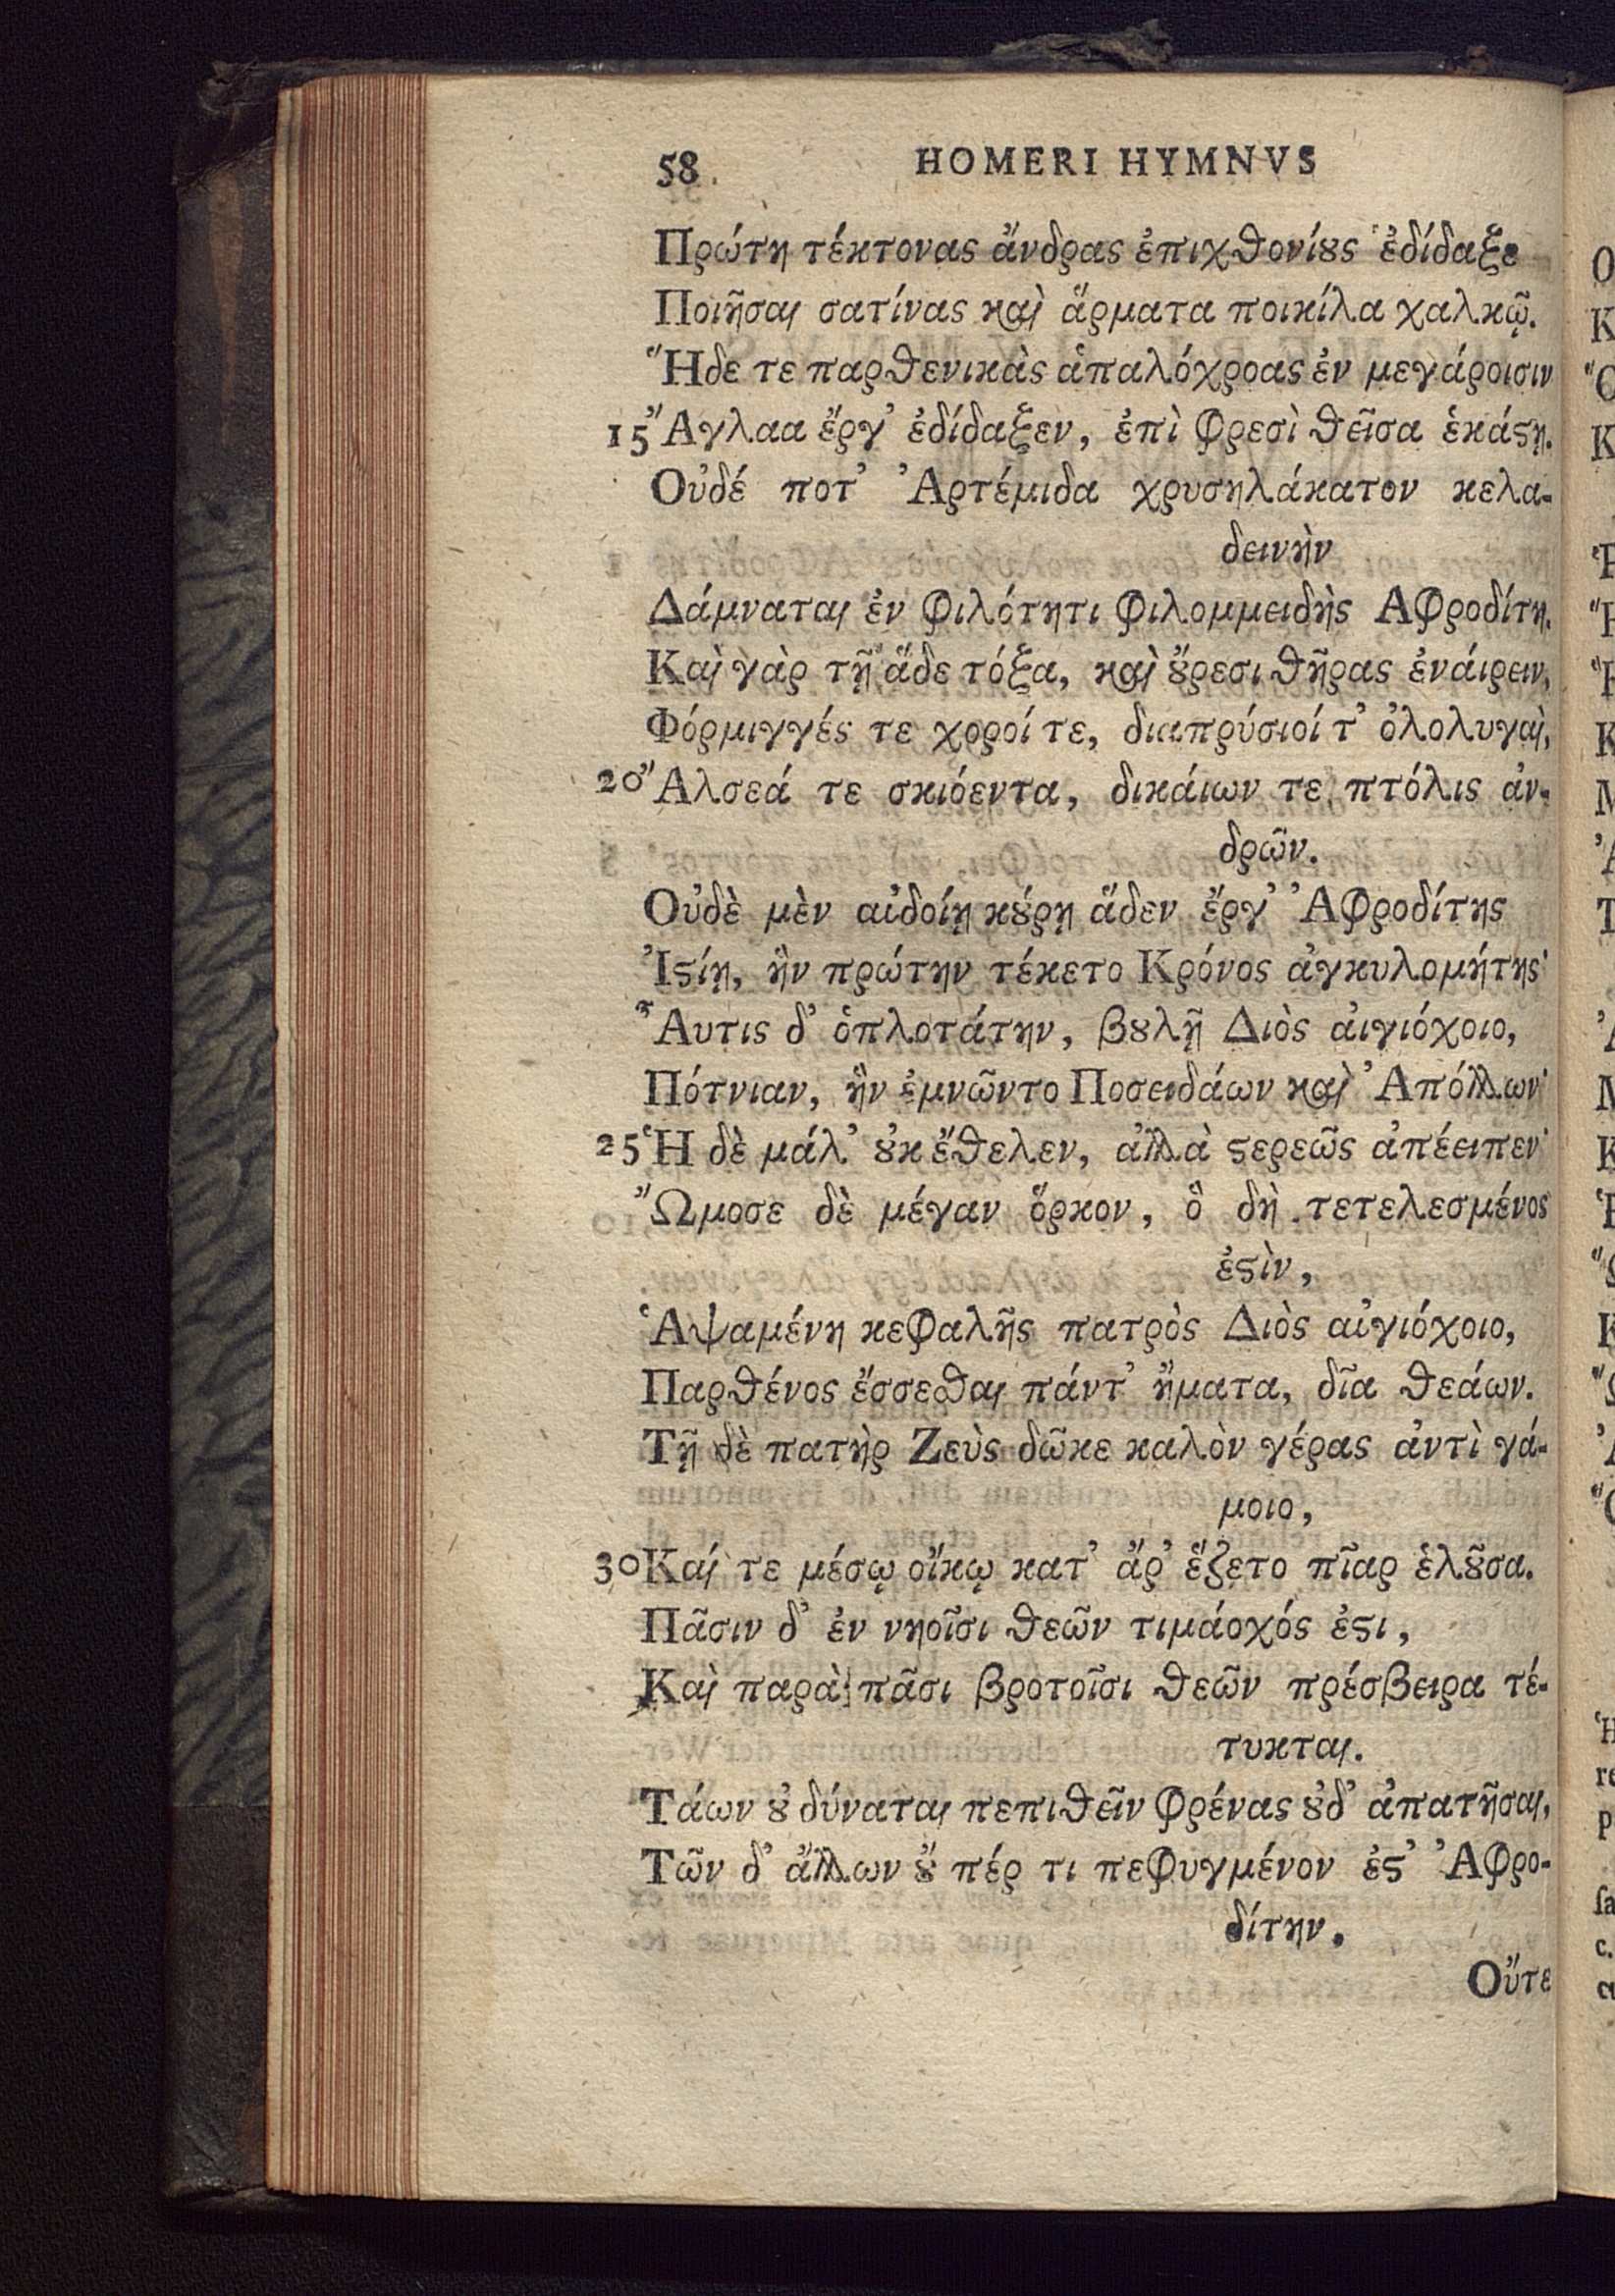 58 HOMERI HYMNVS
Πρώτη τέκτονας ἄνδρας ἐπιχθονίȣς ἐδίδαξε
Ποιῆσαι σατίνας καὶ ἅρματα ποικίλα χαλκῷ.
Ἥδε τε παρθενικὰς ἁπαλόχροας ἐν μεγάροισιν
15 Ἄγλαα ἔργ' ἐδίδαξεν, ἐπὶ φρεσὶ θεῖσα ἑκάϛῃ.
Οὐδέ ποτ' Ἀρτέμιδα χρυσηλάκατον κελα-
δεινὴν
Δάμναται ἐν φιλότητι φιλομμειδὴς Αφροδίτη.
Καὶ γὰρ τῇ ἅδε τόξα, καὶ ȣ̓́ρεσι θῆρας ἐνάιρειν,
Φόρμιγγές τε χοροί τε, διαπρύσιοί τ' ὀλολυγαὶ,
20 Ἄλσεά τε σκιόεντα, δικάιων τε πτόλις ἀν-
δρῶν.
Οὐδὲ μὲν αἰδοίῃ κȣ́ρῃ ἅδεν ἔργ' Ἀφροδίτης
Ἰϛίῃ, ἣν πρώτην τέκετο Κρόνος ἀγκυλομήτης·
Ἆυτις δ' ὁπλοτάτην, βȣλῇ Διὸς ἀιγιόχοιο,
Πότνιαν, ἣν ἐμνῶντο Ποσειδάων καὶ Ἀπόλλων·
25 Ἡ δὲ μάλ' ȣ̓κ ἔθελεν, ἀλλὰ ϛερεῶς ἀπέειπεν·
Ὤμοσε δὲ μέγαν ὅρκον, ὃ δὴ τετελεσμένος
ἐϛὶν,
Ἁψαμένη κεφαλῆς πατρὸς Διὸς αἰγιόχοιο,
Παρθένος ἔσσεσθαι πάντ' ἤματα, δῖα θεάων.
Τῇ δὲ πατὴρ Ζεὺς δῶκε καλὸν γέρας ἀντὶ γά-
μοιο,
30 Καί τε μέσῳ οἴκῳ κατ' ἄρ' ἕζετο πῖαρ ἑλȣ͂σα.
Πᾶσιν δ' ἐν νηοῖσι θεῶν τιμάοχός ἐϛι,
Καὶ παρὰ πᾶσι βροτοῖσι θεῶν πρέσβειρα τέ-
τυκται.
Τάων ȣ̓ δύναται πεπιθεῖν φρένας ȣ̓δ' ἀπατῆσαι,
Τῶν δ' ἄλλων ȣ̓́ πέρ τι πεφυγμένον ἐϛ' Ἀφρο-
δίτην.
Οὔτε